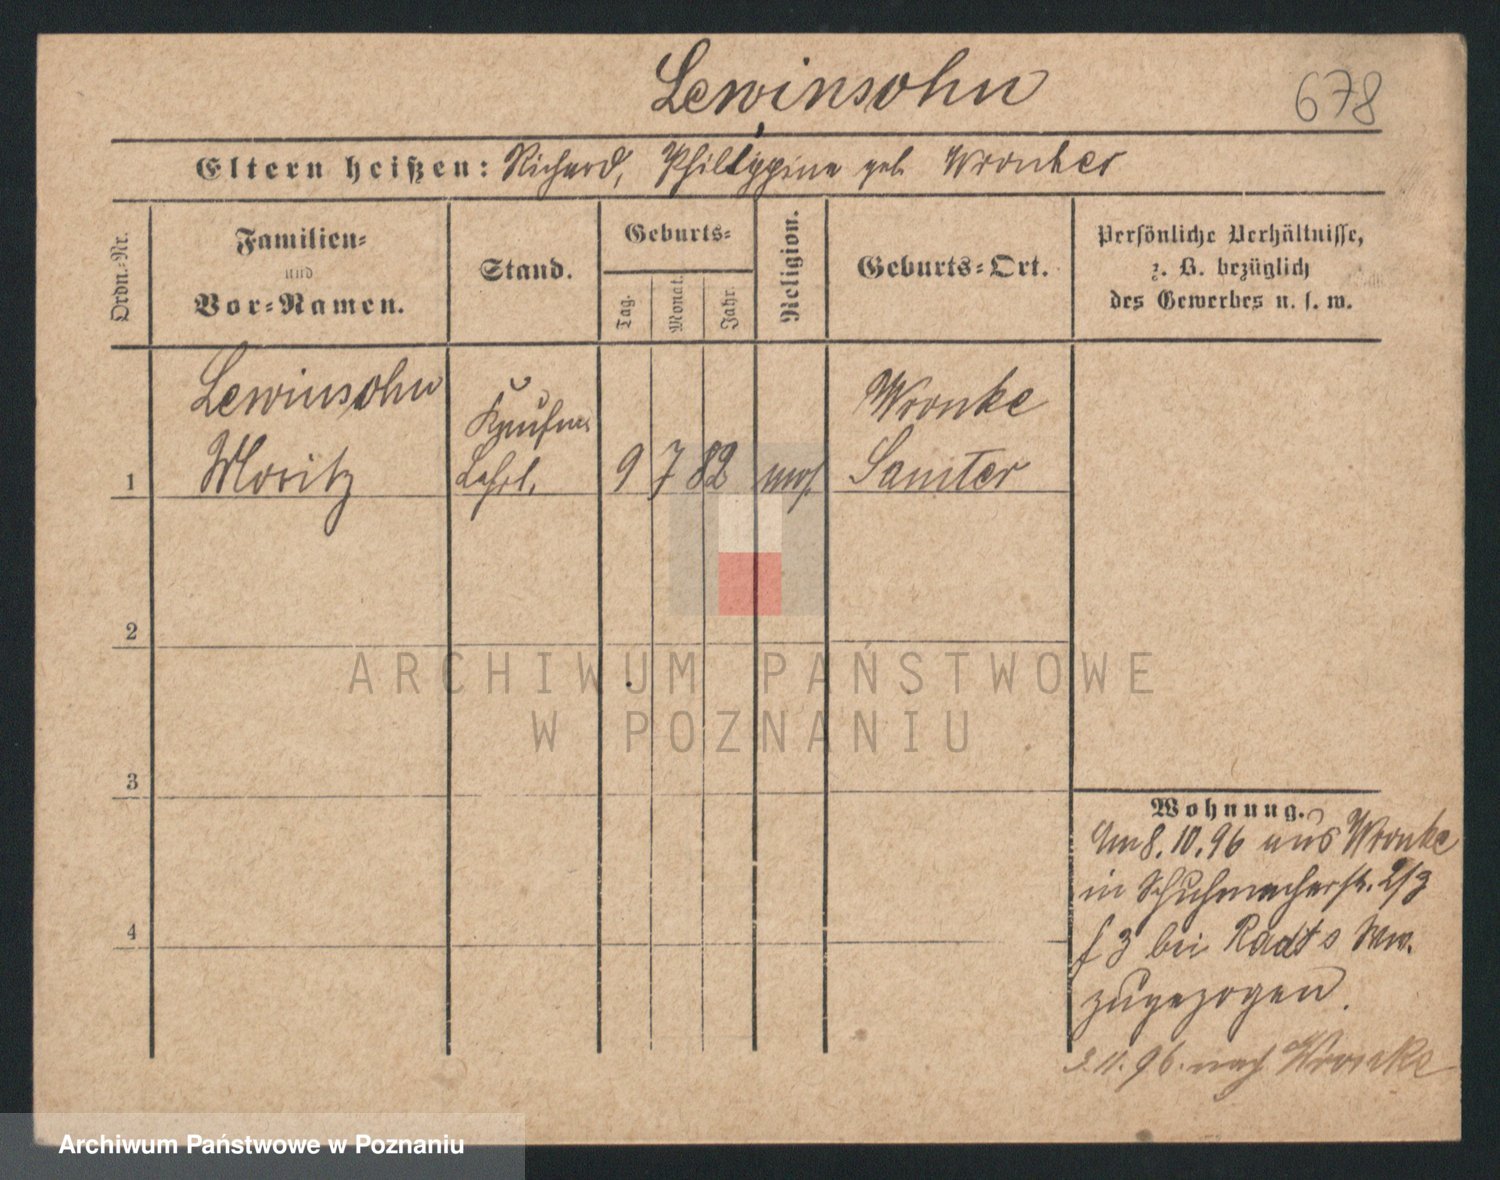 Lewinsohn
678
Eltern heißen: Richard, Philippine geb. Wronker
Ordn.-Nr.
Familien-
und
Vor-Namen.
Stand.
Geburts-
Tag.
Monat.
Jahr.
Religion.
Geburts-Ort.
Persönliche Verhältnisse,
z. B. bezüglich
des Gewerbes u. s. w.
Lewinsohn
Moritz
Kaufm.
Lehrl.
1
9 7 82
mos.
Wronke
Samter
2
3
4
Wohnung.
Am 8.10.96 aus Wronke
in Schuhmacherstr. 2/3
f 3 bei Radt s Ww.
zugezogen.
3.11.96. nach Wronke
ARCHIWUM PAŃSTWOWE
W POZNANIU
Archiwum Państwowe w Poznaniu